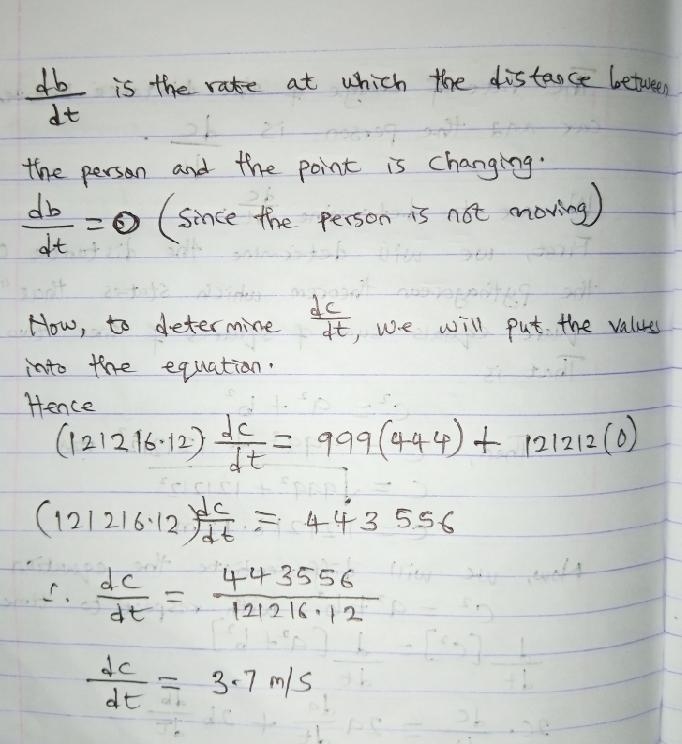 db/dt is the rate at which the distance between
the person and the point is changing.
db/dt = 0 (Since the person is not moving)
Now, to determine dc/dt, we will put the values
into the equation.
Hence
(121216.12) dc/dt = 999(444) + 121212(0)
(121216.12) dc/dt = 443 556
∴ dc/dt = 443556/121216.12
dc/dt = 3.7 m/s